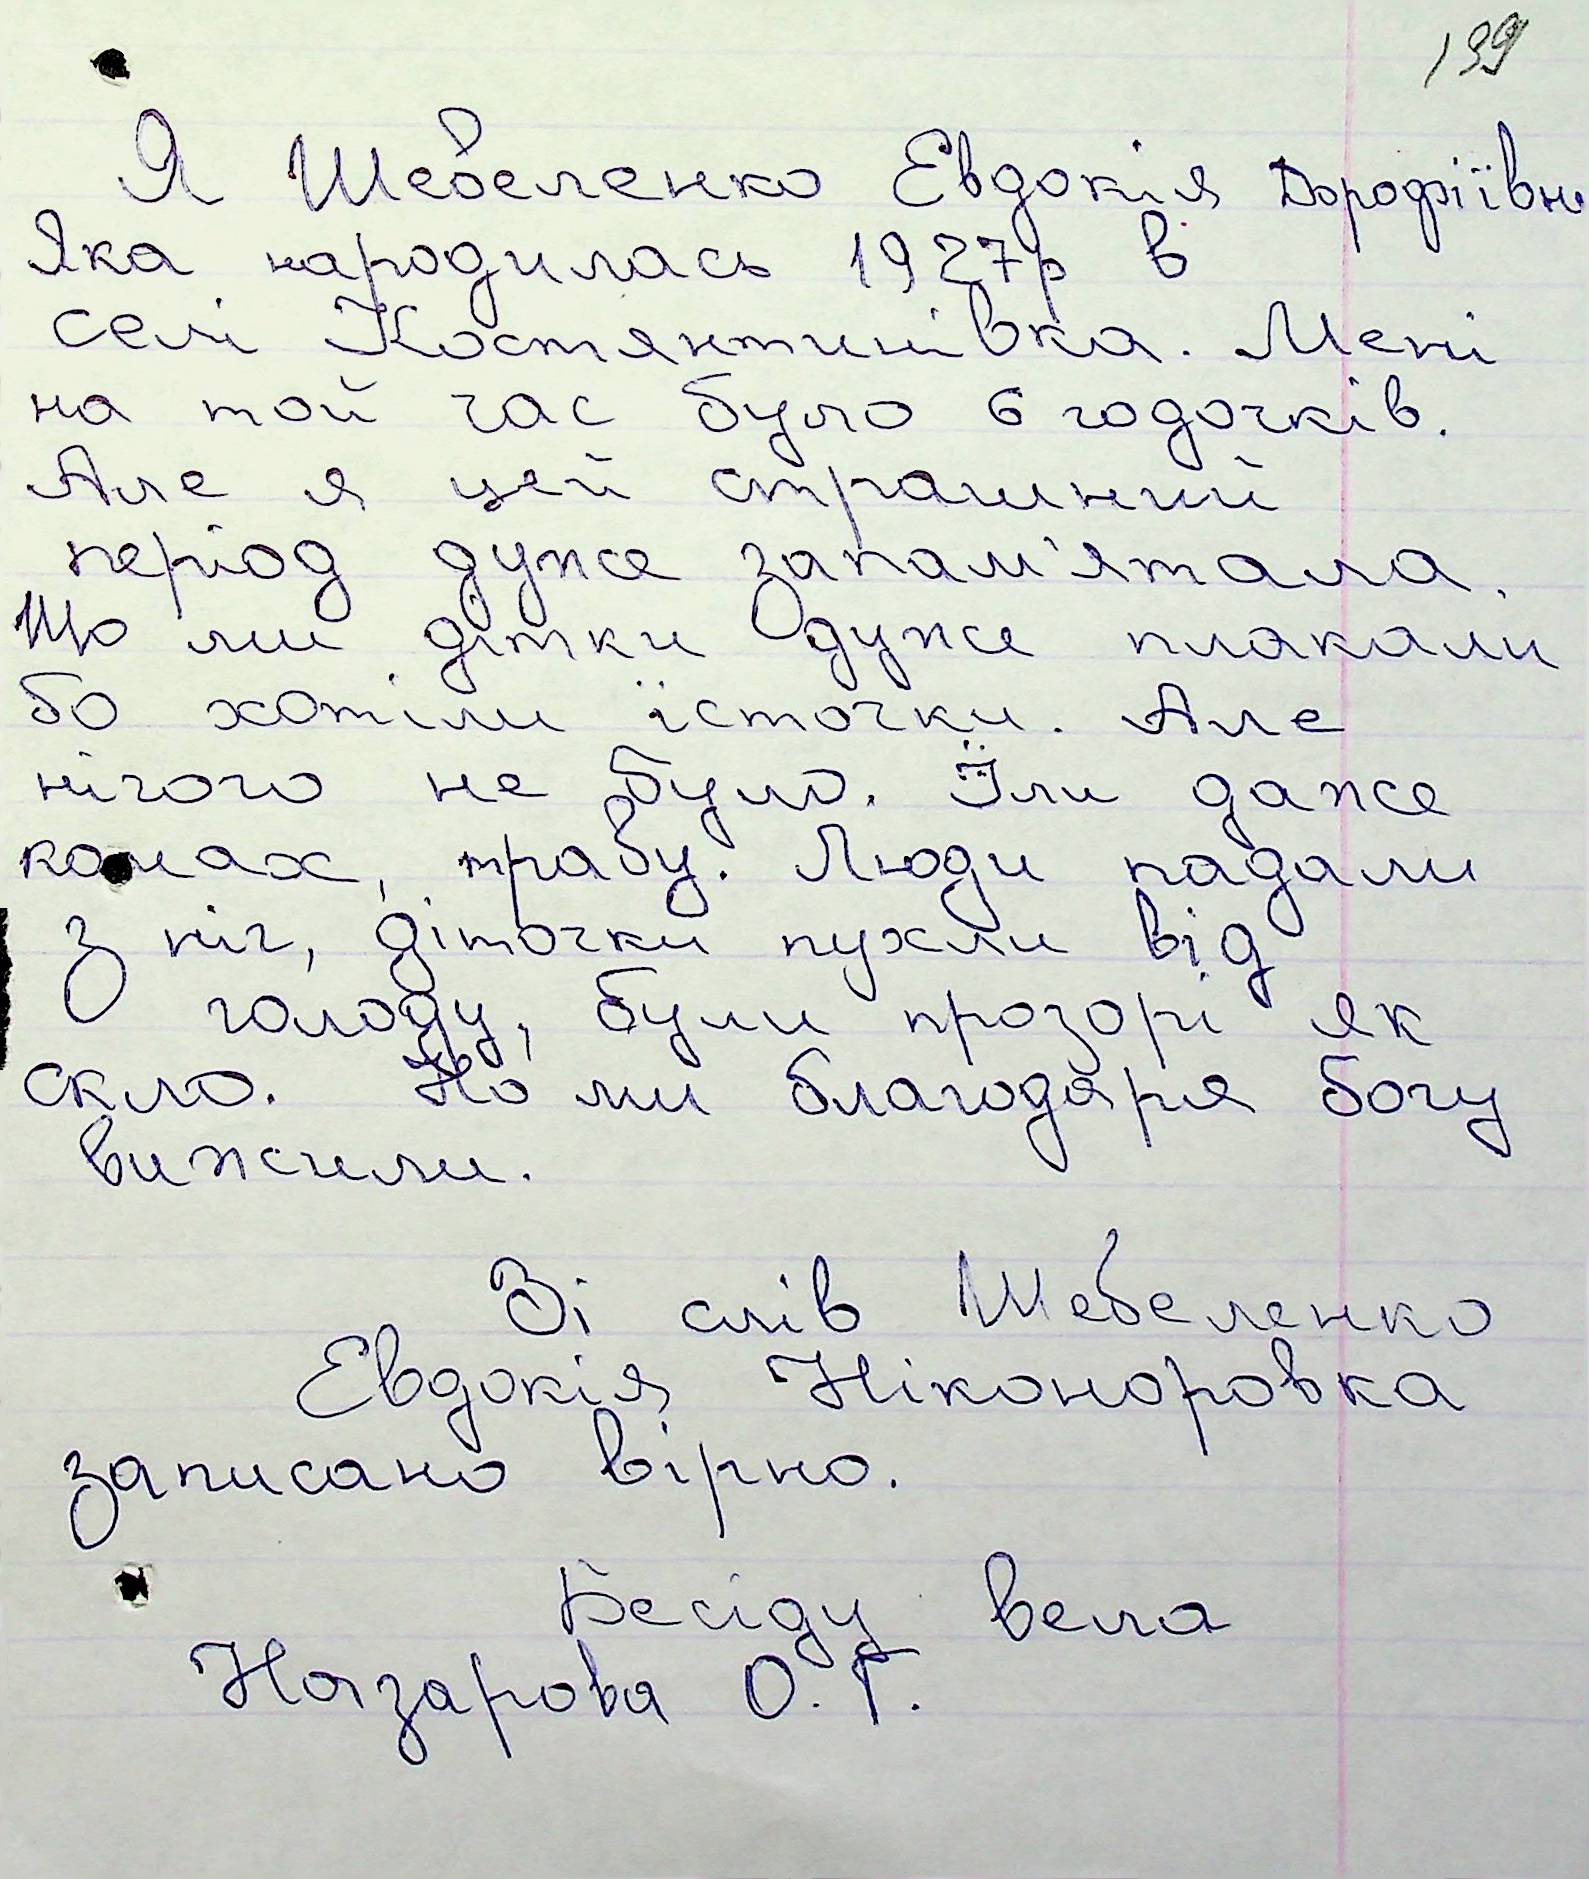 139
Я Шебеленко Евдокія Дорофіївн
Яка народилась 1927р в
селі Костянтинівка. Мені
на той час було 6 годочків.
Але я цей страшний
період дуже запам'ятала.
Що ми дітки дуже плакали
бо хотіли їсточки. Але
нічого не було. Їли даже
комах, траву. Люди падали
з ніг, діточки пухли від
голоду, були прозорі як
скло. Но ми благодаря богу
вижили.
Зі слів Шебеленко
Евдокія Ніконоровка
записано вірно.
Бесіду вела
Назарова О. Г.